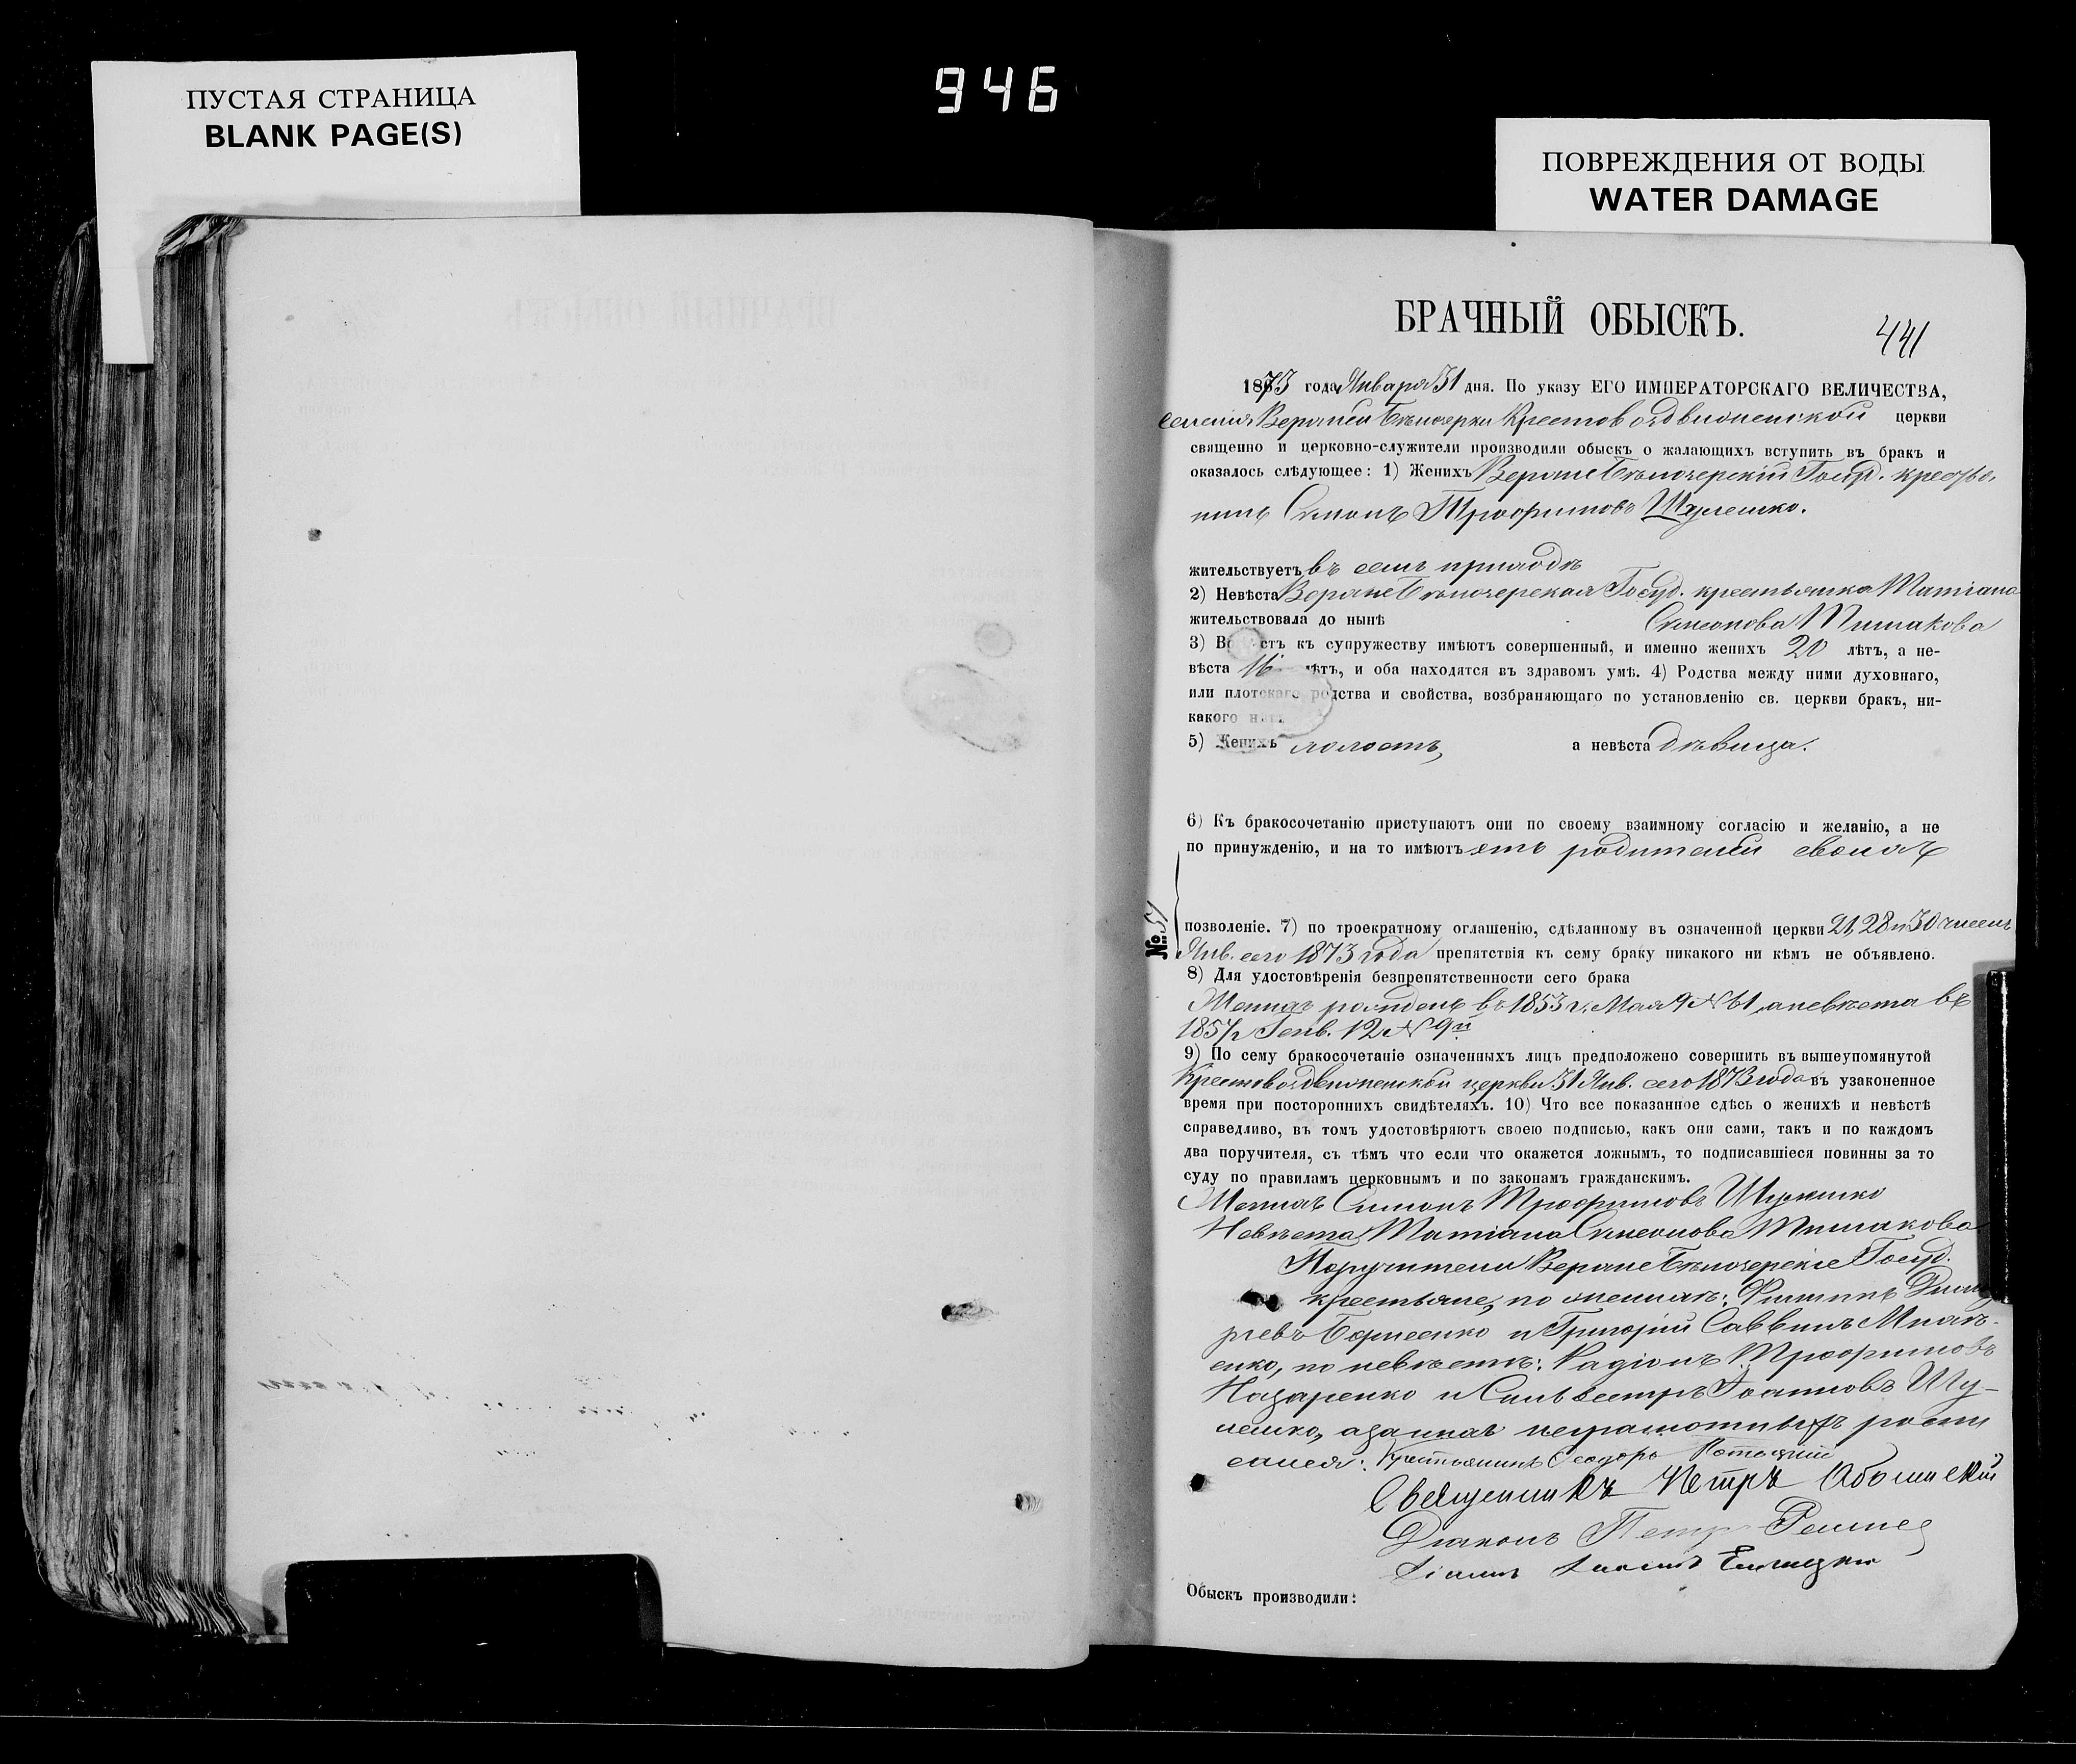 ПУСТАЯ СТРАНИЦА
BLANK PAGE(S)
946
ПОВРЕЖДЕНИЯ ОТ ВОДЫ
WATER DAMAGE
БРАЧНЫЙ ОБЫСКЪ.
441
1873 года Января 31 дня. По указу ЕГО ИМПЕРАТОРСКАГО ВЕЛИЧЕСТВА,
селенія Верхней Бѣлозерки Крестовоздвиженской церкви
священно и церковно-служители производили обыскъ о жалающихъ вступить въ бракъ и
оказалось слѣдующее: 1) Женихъ Верхне Бѣлозерскій Госуд. крестья-
нинъ Симонъ Трофимовъ Шулешко.
жительствуетъ въ семъ приходѣ
2) Невѣста Верхне Бѣлозерская Госуд. крестьянка Татіана
жительствовала до нынѣ Симеонова Тишакова
3) Во стъ къ супружеству имѣютъ совершенный, и именно женихъ 20 лѣтъ, а не-
вѣста 16 лѣтъ, и оба находятся въ здравомъ умѣ. 4) Родства между ними духовнаго,
или плотскаго родства и свойства, возбраняющаго по установленію св. церкви бракъ, ни-
какого нѣтъ
5) Женихъ холостъ, а невѣста дѣвица.
6) Къ бракосочетанію приступаютъ они по своему взаимному согласію и желанію, а не
по принужденію, и на то имѣютъ отъ родителей своихъ
№ 51
позволеніе. 7) по троекратному оглашенію, сдѣланному въ означенной церкви 21, 28 и 30 чиселъ
Янв. сего 1873 года препятствія къ сему браку никакого ни кѣмъ не объявлено.
8) Для удостовѣренія безпрепятственности сего брака
Женихъ рожденъ въ 1853 г. Мая 9 № 61, а невѣста въ
1857 г. Генв. 12 № 9й
9) По сему бракосочетаніе означенныхъ лицъ предположено совершить въ вышеупомянутой
Крестовоздвиженской церкви 31 Янв. сего 1873 года въ узаконенное
время при постороннихъ свидѣтеляхъ. 10) Что все показанное сдѣсь о женихѣ и невѣстѣ
справедливо, въ томъ удостовѣряютъ своею подписью, какъ они сами, такъ и по каждомъ
два поручителя, съ тѣмъ что если что окажется ложнымъ, то подписавшіеся повинны за то
суду по правиламъ церковнымъ и по законамъ гражданскимъ.
Женихъ Симонъ Трофимовъ Шулешко
Невѣста Татіана Симеонова Тишакова
Поручители Верхне Бѣлозерскіе Госуд.
крестьяне, по женихѣ: Филиппъ
Борисенко и Григорій Саввинъ Михѣ-
енко, по невѣстѣ: Радіонъ Трофимовъ
Назаренко и Сильвестръ Іоанновъ Шу-
лешко, а за нихъ неграмотныхъ роспи
сался: Крестьянинъ Феодоръ
Священникъ Петръ
Діаконъ Петръ
Обыскъ производили: